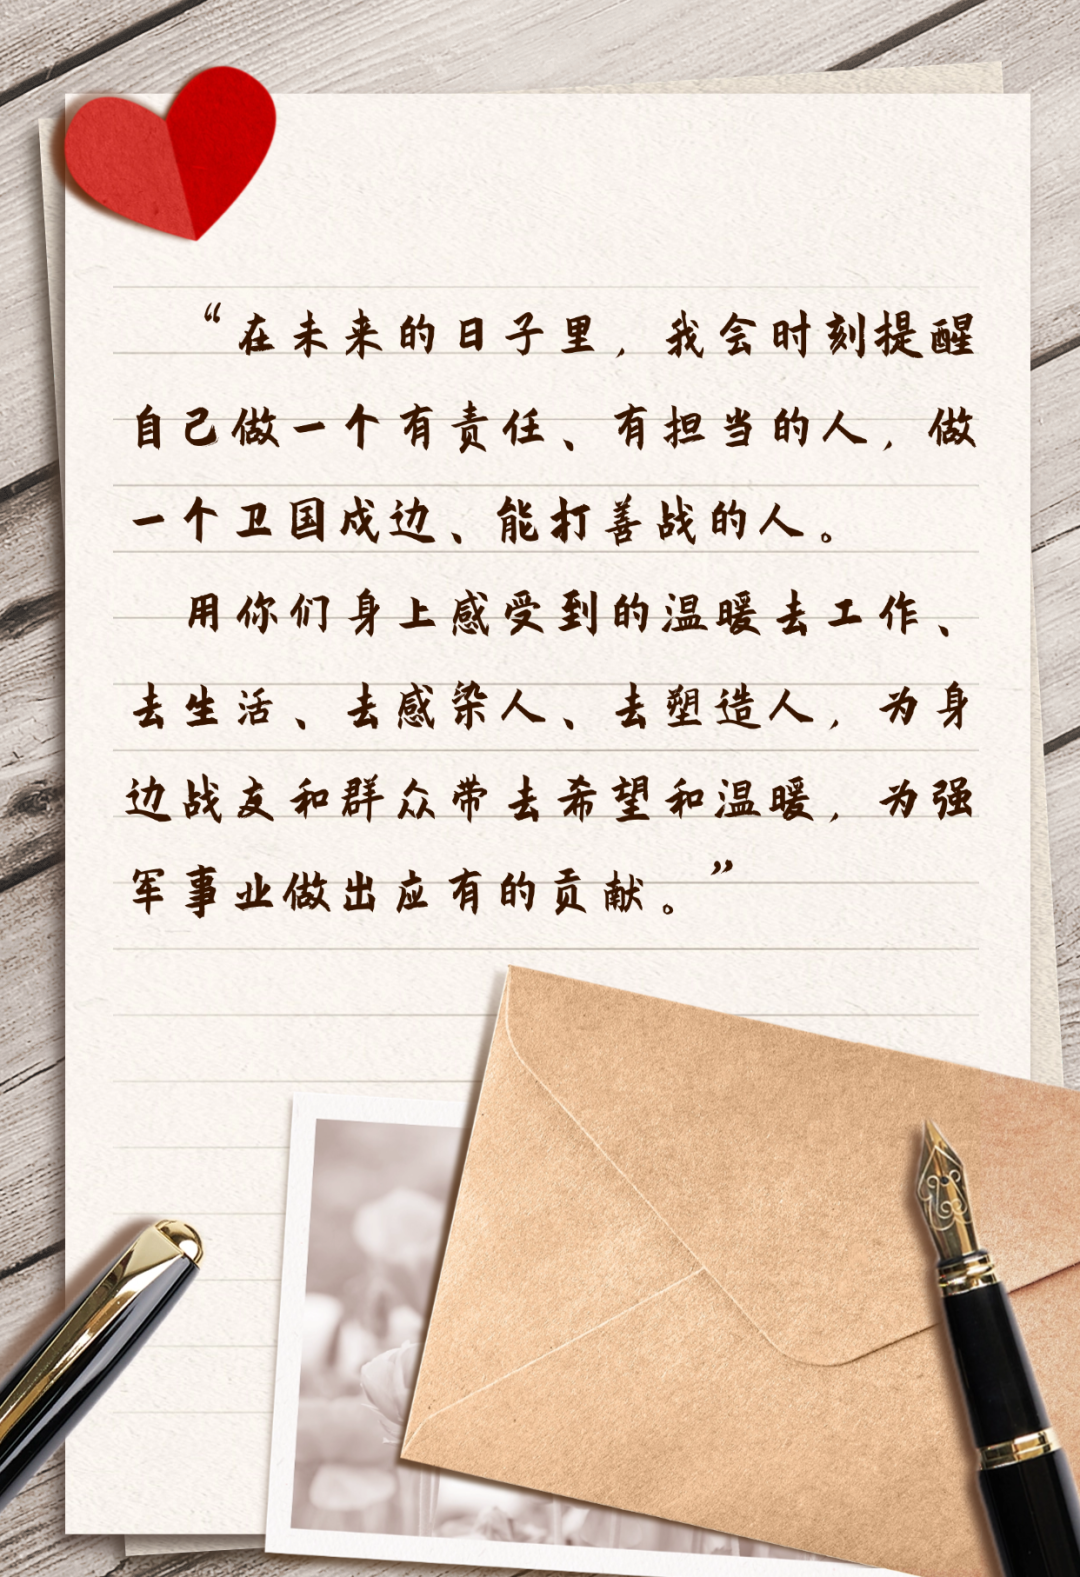 “在未来的日子里，我会时刻提醒
自己做一个有责任、有担当的人，做
一个卫国戍边、能打善战的人。
用你们身上感受到的温暖去工作、
去生活、去感染人、去塑造人，为身
边战友和群众带去希望和温暖，为强
军事业做出应有的贡献。”